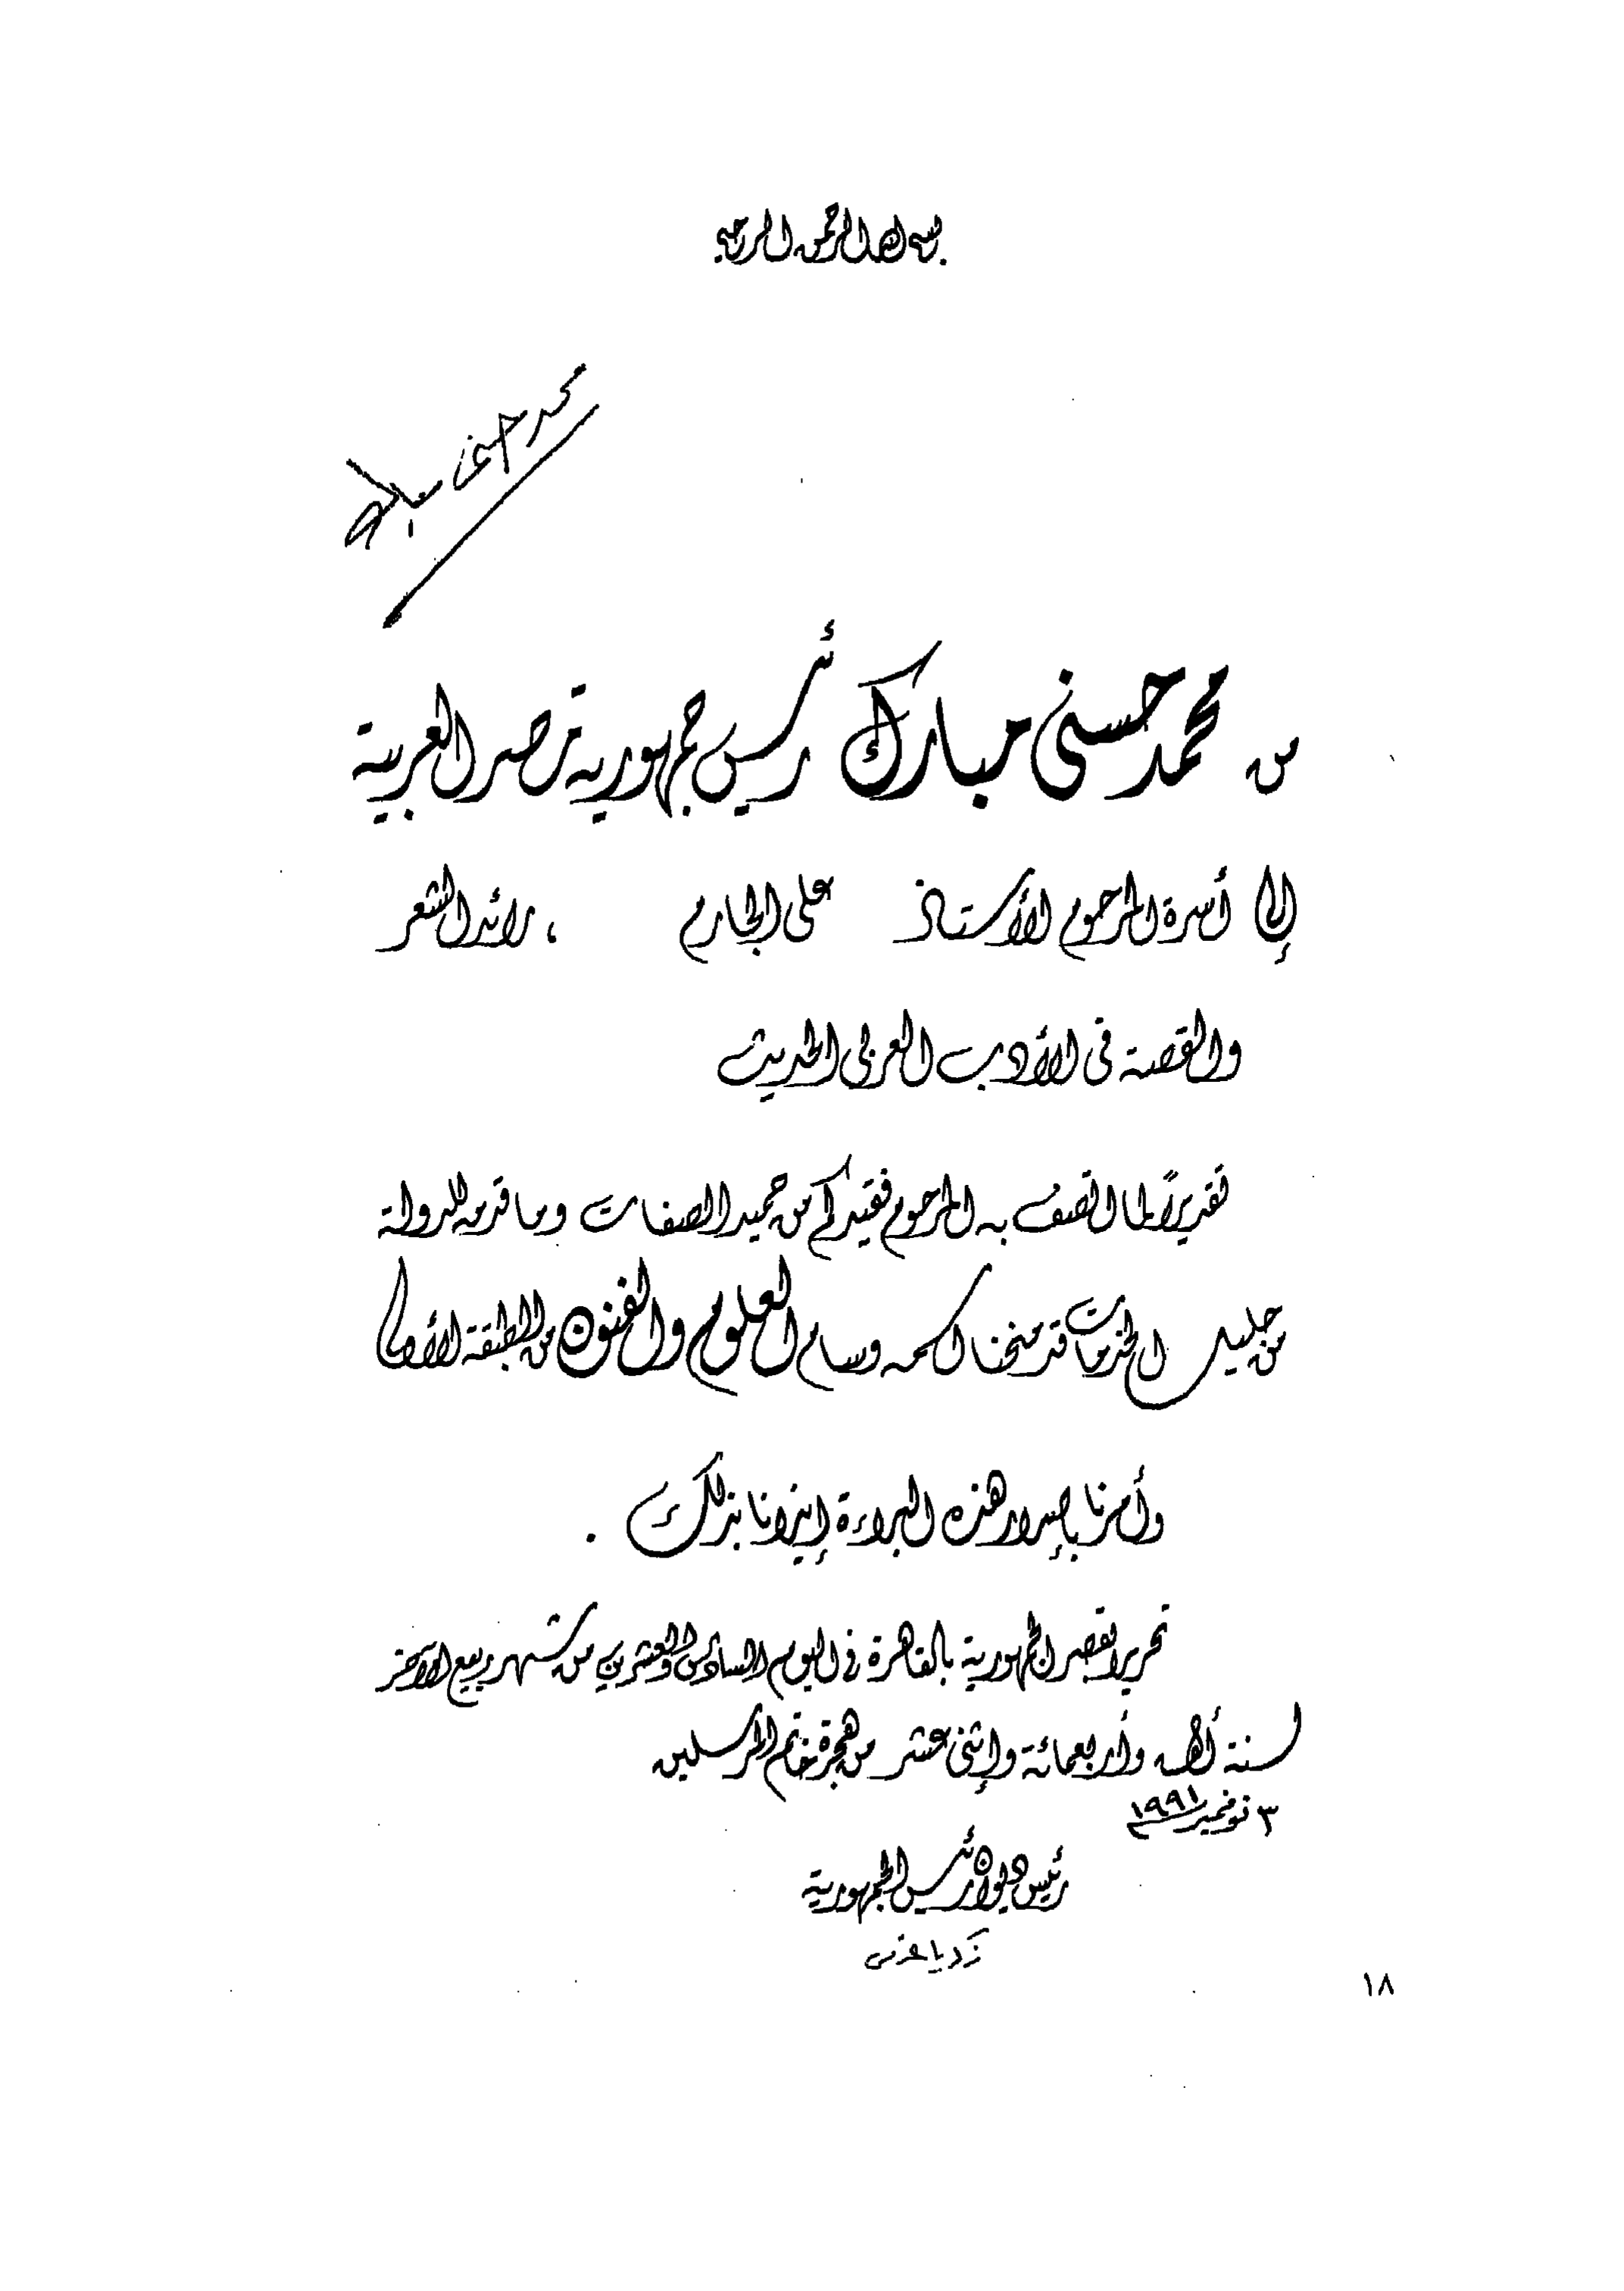 بسم الله الرحمن الرحيم
محمد حسنى مبارك
من محمد حسنى مبارك رئيس جمهورية مصر العربية
إلى أسرة المرحوم الأستاذ على الجارم ، رائد الشعر
والقصة فى الأدب العربى الحديث
تقديرًا لما اتصف به المرحوم فقيدكم من حميد الصفات وما قدمه للدولة
من جليل الخدمات قد منحنا اسمه وسام العلوم والفنون من الطبقة الأولى
وأمرنا بإصدار هذه البراءة إيذانا بذلك .
تحريرا بقصر الجمهورية بالقاهرة فى اليوم السادس والعشرين من شهر ربيع الآخر
لسنة ألف وأربعمائة وإثنى عشر من هجرة خاتم المرسلين
٣ نوفمبر سنة ١٩٩١
رئيس ديوان رئيس الجمهورية
زكريا عزمى
١٨